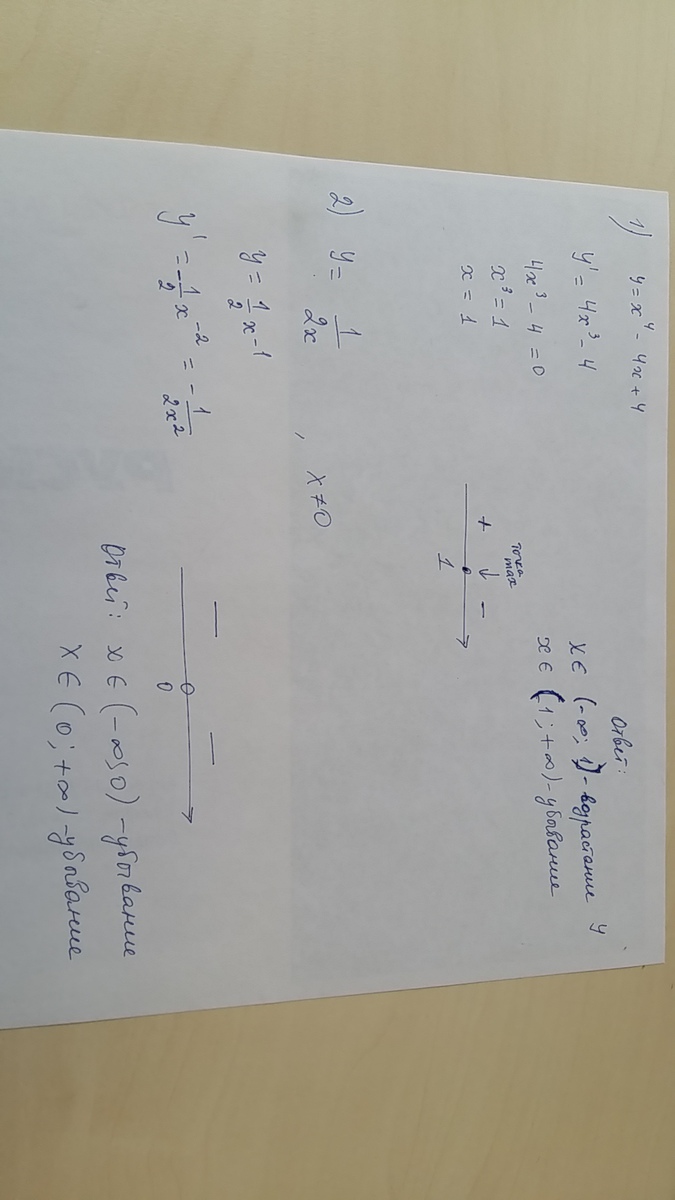 1) y = x⁴ - 4x + 4
y' = 4x³ - 4
4x³ - 4 = 0
x³ = 1
x = 1
точка
max
+ ↓ -
1
Ответ:
x ∈ (-∞; 1) - возрастание y
x ∈ (1; +∞) - убывание
2) y = 1/2x , x ≠ 0
y = 1/2 x⁻¹
y' = -1/2 x⁻² = - 1/2x²
- -
0
Ответ: x ∈ (-∞; 0) - убывание
x ∈ (0; +∞) - убывание